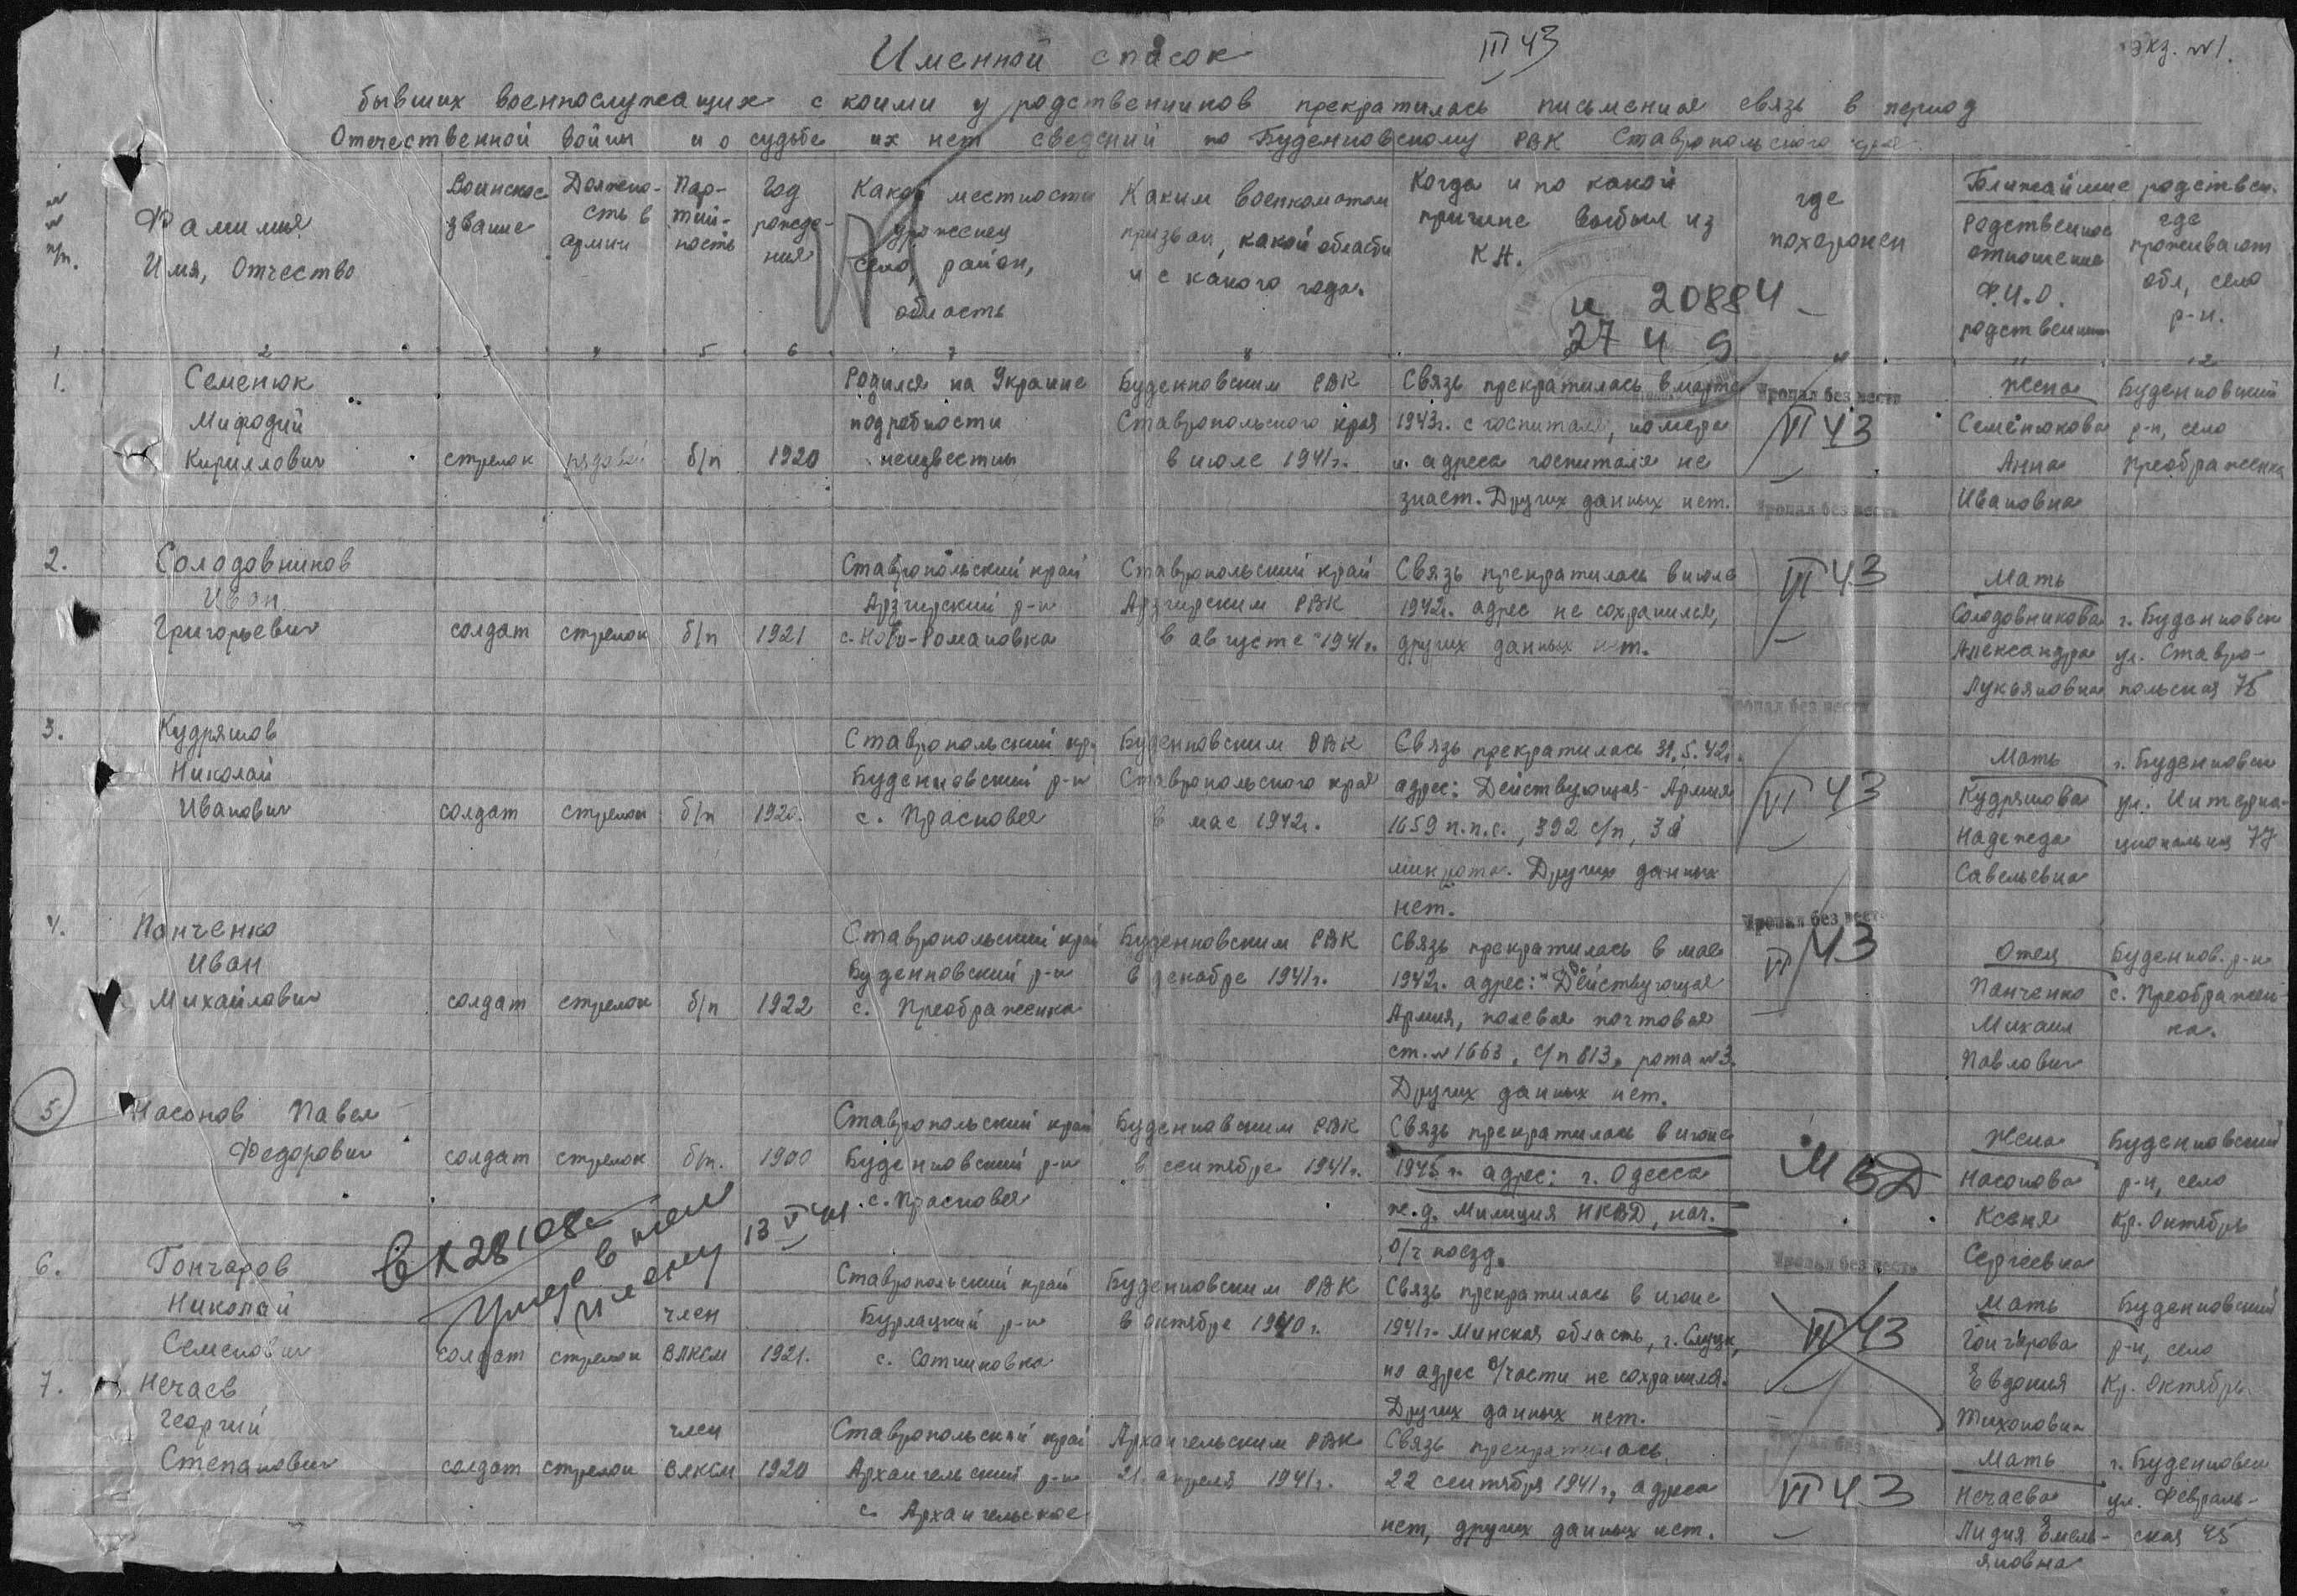 Именной список
III 43
экз. №1.
бывших военнослужащих с коими у родственников прекратилась письменная связь в период
Отечественной войны и о судьбе их нет сведений по Буденновскому РВК Ставропольского края
№ № п/п.
Фамилия
Имя, Отчество
Воинское
звание
Должно-
сть в
армии
Пар-
тий-
ность
Год
рожде-
ния
Какой местности
уроженец
село, район,
область
Каким военкоматом
призван, какой области
и с какого года.
Когда и по какой
причине выбыл из
К.А.
и 20884
27 4 9
где
похоронен
Ближайшие родствен.
Родственное
отношение
Ф.И.О.
родственника
где
проживают
обл, село
р-н.
1 2 3 4 5 6 7 8 11 12
1.
Семенюк
Мифодий
Кириллович
стрелок
рядовой
б/п
1920
Родился на Украине
подробности
неизвестны
Буденновским РВК
Ставропольского края
в июле 1941г.
Связь прекратилась в марте
1943г. с госпиталя, номера
и адреса госпиталя не
знает. Других данных нет.
Пропал без вести
VI 43
Жена
Семенюкова
Анна
Ивановна
Буденновский
р-н, село
Преображенка
2.
Солодовников
Иван
Григорьевич
солдат
стрелок
б/п
1921
Ставропольский край
Арзгирский р-н
с. Ново-Романовка
Ставропольский край
Арзгирским РВК
в августе 1941г.
Связь прекратилась в июле
1942г. адрес не сохранился,
других данных нет.
Пропал без вести
VI 43
Мать
Солодовникова
Александра
Лукьяновна
г. Буденновск
ул. Ставро-
польская 75
3.
Кудряшов
Николай
Иванович
солдат
стрелок
б/п
1920.
Ставропольский кр.
Буденновский р-н
с. Прасковея
Буденновским РВК
Ставропольского края
в мае 1942г.
Связь прекратилась 31.5.42г.
адрес: Действующая Армия
1659 п.п.с., 392 с/п, 3я
минрота. Других данных
нет.
Пропал без вести
VI 43
Мать
Кудряшова
Надежда
Савельевна
г. Буденновск
ул. Интерна-
циональная 77
4.
Панченко
Иван
Михайлович
солдат
стрелок
б/п
1922
Ставропольский край
Буденновский р-н
с. Преображенка
Буденновским РВК
в декабре 1941г.
Связь прекратилась в мае
1942г. адрес: Действующая
Армия, полевая почтовая
ст. №1663, с/п 813, рота №3.
Других данных нет.
Пропал без вести
VI 43
Отец
Панченко
Михаил
Павлович
Буденнов. р-н
с. Преображен-
ка.
5
Насонов Павел
Федорович
солдат
стрелок
б/п.
1900
Ставропольский край
Буденновский р-н
с. Прасковея
Буденновским РВК
в сентябре 1941г.
Связь прекратилась в июне
1945г. адрес: г. Одесса
ж.д. Милиция НКВД, нач.
о/ч поезд.
МВД
Жена
Насонова
Ксения
Сергеевна
Буденновский
р-н, село
Кр. Октябрь
6.
Гончаров
Николай
Семенович
вх 28108с
Умер в
плену
13 V
солдат
стрелок
член
ВЛКСМ
1921.
Ставропольский край
Бурлацкий р-н
с. Сотниковка
Буденновским РВК
в октябре 1940г.
Связь прекратилась в июне
1941г. Минская область, г. Слуцк,
но адрес в/части не сохранился.
Других данных нет.
Пропал без весть
VI 43
Мать
Гончарова
Евдокия
Тихоновна
Буденновский
р-н, село
Кр. Октябрь
7.
Нечаев
Георгий
Степанович
солдат
стрелок
член
ВЛКСМ
1920
Ставропольский край
Архангельский р-н
с. Архангельское
Архангельским РВК
21. апреля 1941г.
Связь прекратилась
22 сентября 1941г, адреса
нет, других данных нет.
VI 43
Мать
Нечаева
Лидия Емель-
яновна
г. Буденновск
ул. Февраль-
ская 45